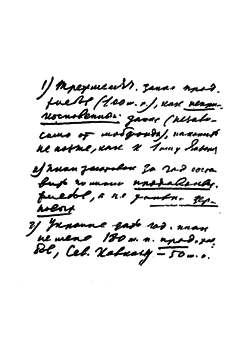 1) Трехмесячн. запас прод.
фиков (120 м. п.), как непри-
косновенный запас (незави-
симо от мобфонда), накопить
не позже, как к 1-му
2) План заготовок за год соста-
вить по линии продовольств.
а не
3) Украине дать год. план
не менее 180 м. п. прод. хле-
бов, Сев. Кавказу – 50 м. п.